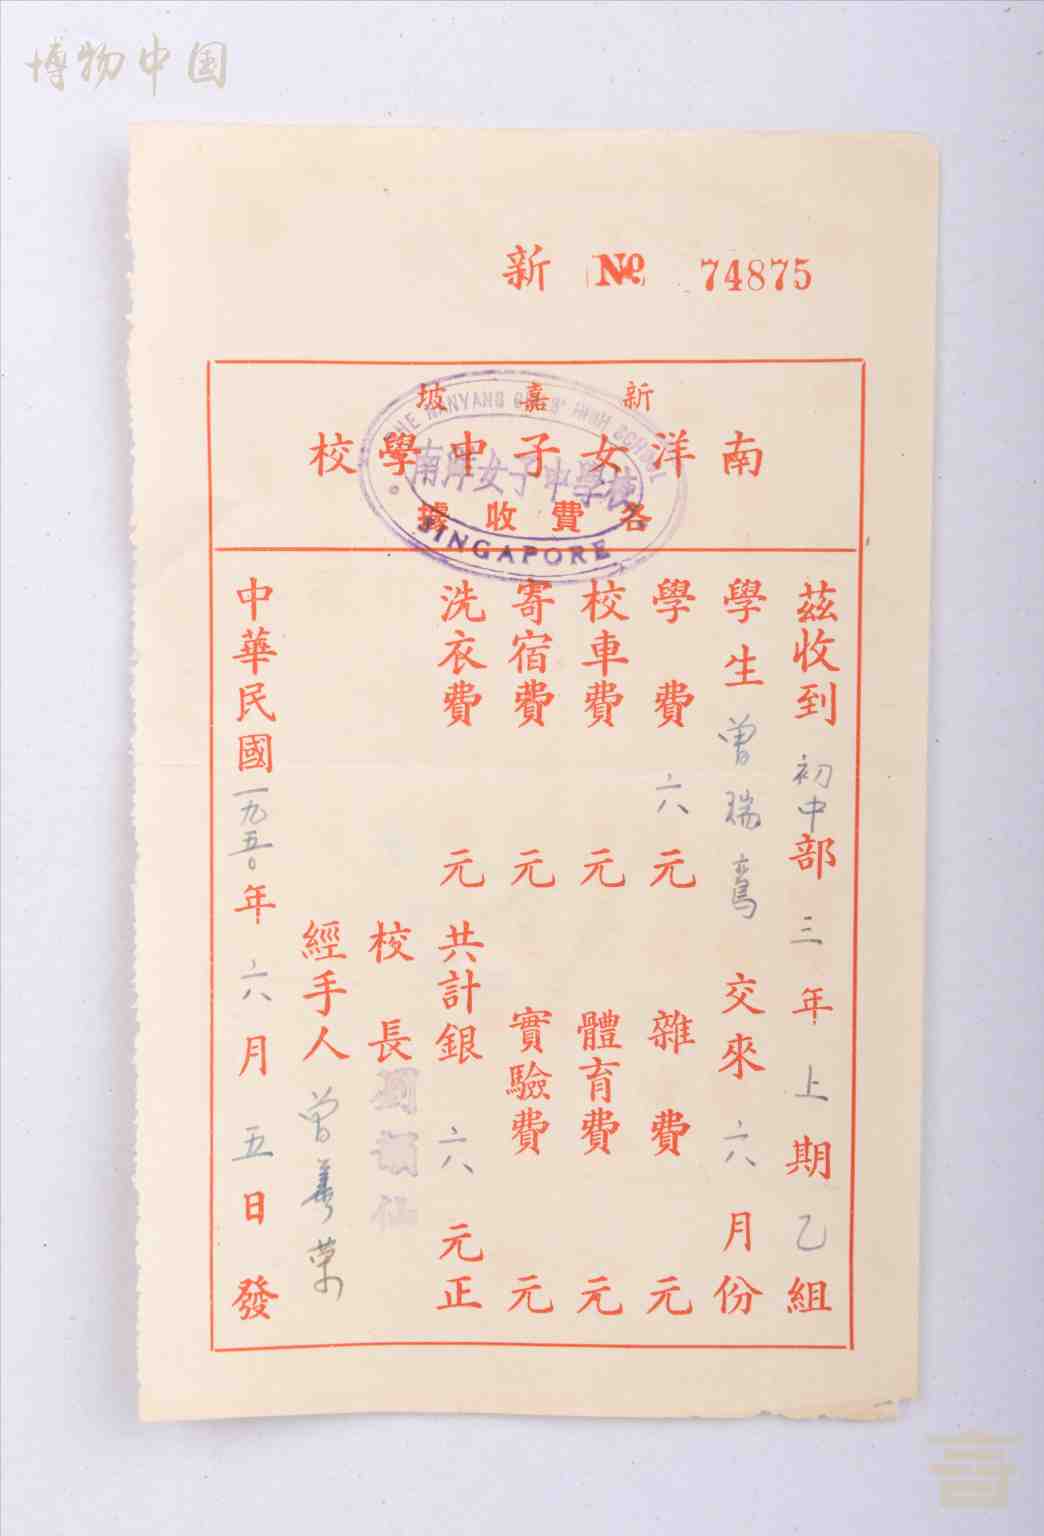 博物中国
新 № 74875
新嘉坡
南洋女子中學校
各費收據
THE NANYANG GIRLS' HIGH SCHOOL
南洋女子中學校
SINGAPORE
茲收到初中部三年上期乙組
學生曾瑞鸞交來六月份
學費六元 雜費 元
校車費 元 體育費 元
寄宿費 元 實驗費 元
洗衣費 元 共計銀六元正
校長
經手人曾
中華民國一九五〇年六月五日發